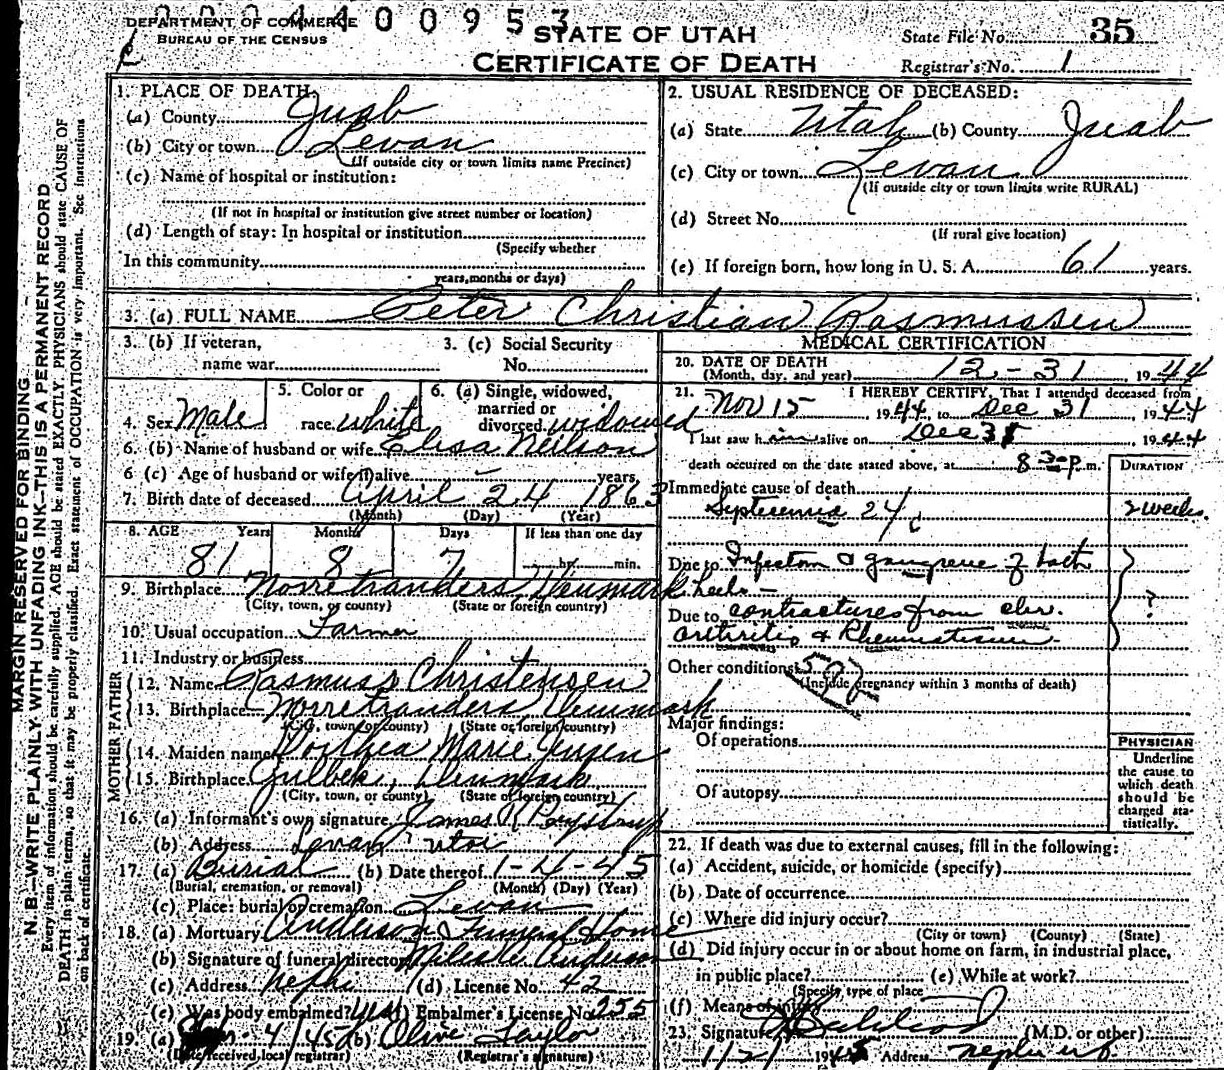 004400953
DEPARTMENT OF COMMERCE
BUREAU OF THE CENSUS
STATE OF UTAH
CERTIFICATE OF DEATH
State File No. 35
Registrar's No. 1
MARGIN RESERVED FOR BINDING
N. B.—WRITE PLAINLY WITH UNFADING INK—THIS IS A PERMANENT RECORD
Every item of information should be carefully supplied. AGE should be stated EXACTLY. PHYSICIANS should state CAUSE OF
DEATH in plain terms, so that it may be properly classified. Exact statement of OCCUPATION is very important. See instructions
on back of certificate.
1. PLACE OF DEATH:
(a) County Juab
(b) City or town Levan
(If outside city or town limits name Precinct)
(c) Name of hospital or institution:
(If not in hospital or institution give street number or location)
(d) Length of stay: In hospital or institution
(Specify whether
In this community
years, months or days)
2. USUAL RESIDENCE OF DECEASED:
(a) State Utah (b) County Juab
(c) City or town Levan
(If outside city or town limits write RURAL)
(d) Street No.
(If rural give location)
(e) If foreign born, how long in U. S. A. 61 years.
3. (a) FULL NAME Peter Christian Rasmussen
3. (b) If veteran,
name war
3. (c) Social Security
No.
4. Sex Male
5. Color or
race white
6. (a) Single, widowed,
married or
divorced widowed
6. (b) Name of husband or wife Elisa Neilson
6 (c) Age of husband or wife if alive - years.
7. Birth date of deceased April 24 1863
(Month) (Day) (Year)
8. AGE Years Months Days If less than one day
81 8 7 hr. min.
9. Birthplace Norretranders, Denmark
(City, town, or county) (State or foreign country)
10. Usual occupation Farmer
11. Industry or business
FATHER
12. Name Rasmuss Christensen
13. Birthplace Norretranders, Denmark
(City, town or county) (State or foreign country)
MOTHER
14. Maiden name Dorthea Marie Jensen
15. Birthplace Gulbek, Denmark
(City, town, or county) (State of foreign country)
16. (a) Informant's own signature James R
(b) Address Levan Utah
17. (a) Burial (b) Date thereof 1-4-45
(Burial, cremation, or removal) (Month) (Day) (Year)
(c) Place: burial or cremation Levan
18. (a) Mortuary Anderson Funeral Home
(b) Signature of funeral director Anderson
(c) Address Nephi (d) License No. 42
(e) Was body embalmed? yes (f) Embalmer's License No. 255
19. (a) 4/45 (b) Olive Taylor
(Date received local registrar) (Registrar's signature)
MEDICAL CERTIFICATION
20. DATE OF DEATH
(Month, day, and year) 12-31 1944
21. I HEREBY CERTIFY, That I attended deceased from
Nov 15, 1944, to Dec 31, 1944
I last saw him alive on Dec 31, 1944
death occurred on the date stated above, at 8 30 P.m.
DURATION
Immediate cause of death
Septicemia 24 2 weeks.
Due to Infection & gangrene of both
heels -
Due to contractures from chr. ?
arthritis & Rheumatism
Other conditions
(Include pregnancy within 3 months of death)
Major findings:
Of operations
Of autopsy
PHYSICIAN
Underline
the cause to
which death
should be
charged sta-
tistically.
22. If death was due to external causes, fill in the following:
(a) Accident, suicide, or homicide (specify)
(b) Date of occurrence
(c) Where did injury occur?
(City or town) (County) (State)
(d) Did injury occur in or about home on farm, in industrial place,
in public place? (e) While at work?
(Specify type of place
(f) Means of injury
23. Signature (M.D. or other)
1/2/1945 Address Nephi Ut